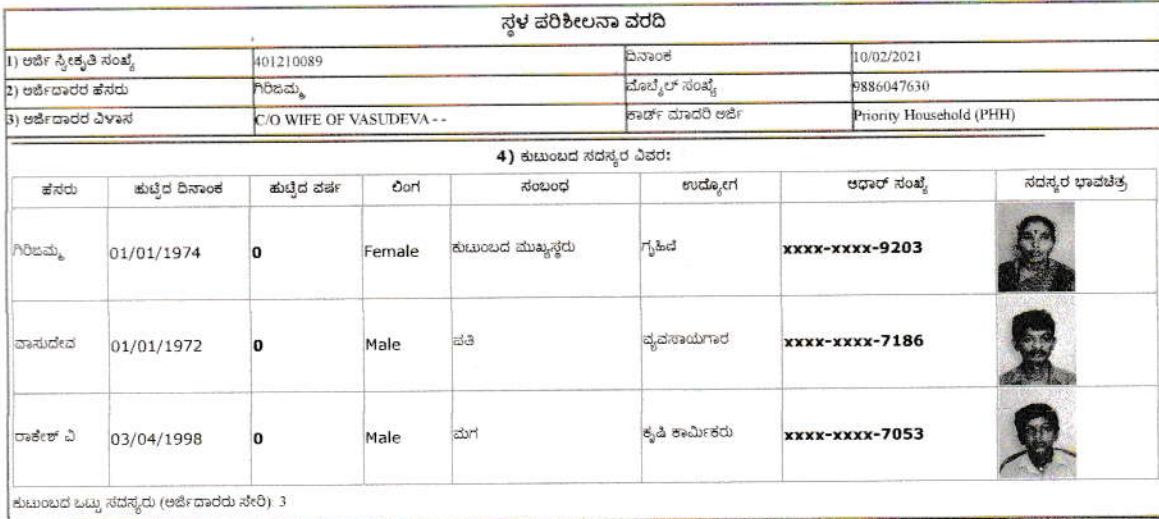 ಸ್ಥಳ ಪರಿಶೀಲನಾ ವರದಿ
1) ಅರ್ಜಿ ಸ್ವೀಕೃತಿ ಸಂಖ್ಯೆ 401210089 ದಿನಾಂಕ 10/02/2021
2) ಅರ್ಜಿದಾರರ ಹೆಸರು ಗಿರಿಜಮ್ಮ ಮೊಬೈಲ್ ಸಂಖ್ಯೆ 9886047630
3) ಅರ್ಜಿದಾರರ ವಿಳಾಸ C/O WIFE OF VASUDEVA - - ಕಾರ್ಡ್ ಮಾದರಿ ಅರ್ಜಿ Priority Household (PHH)
4) ಕುಟುಂಬದ ಸದಸ್ಯರ ವಿವರ:
ಹೆಸರು ಹುಟ್ಟಿದ ದಿನಾಂಕ ಹುಟ್ಟಿದ ವರ್ಷ ಲಿಂಗ ಸಂಬಂಧ ಉದ್ಯೋಗ ಆಧಾರ್ ಸಂಖ್ಯೆ ಸದಸ್ಯರ ಭಾವಚಿತ್ರ
ಗಿರಿಜಮ್ಮ 01/01/1974 0 Female ಕುಟುಂಬದ ಮುಖ್ಯಸ್ಥರು ಗೃಹಿಣಿ xxxx-xxxx-9203
ವಾಸುದೇವ 01/01/1972 0 Male ಪತಿ ವ್ಯವಸಾಯಗಾರ xxxx-xxxx-7186
ರಾಕೇಶ್ ವಿ 03/04/1998 0 Male ಮಗ ಕೃಷಿ ಕಾರ್ಮಿಕರು xxxx-xxxx-7053
ಕುಟುಂಬದ ಒಟ್ಟು ಸದಸ್ಯರು (ಅರ್ಜಿದಾರರು ಸೇರಿ): 3